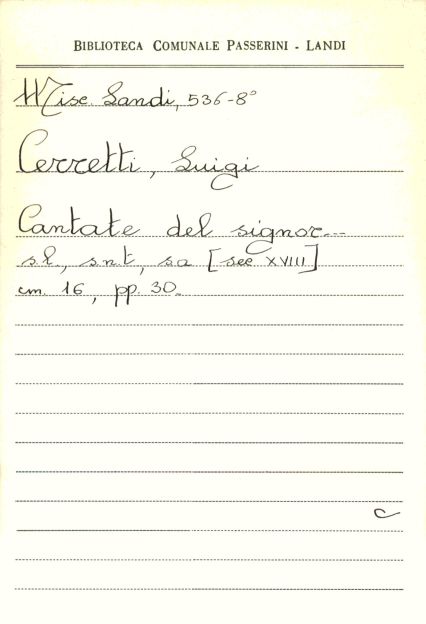 BIBLIOTECA COMUNALE PASSERINI - LANDI
Misc. Landi, 536-8°
Cerretti, Luigi
Cantate del signor...
s.l., s.n.t., s.a. [sec XVIII]
cm. 16, pp. 30.
c